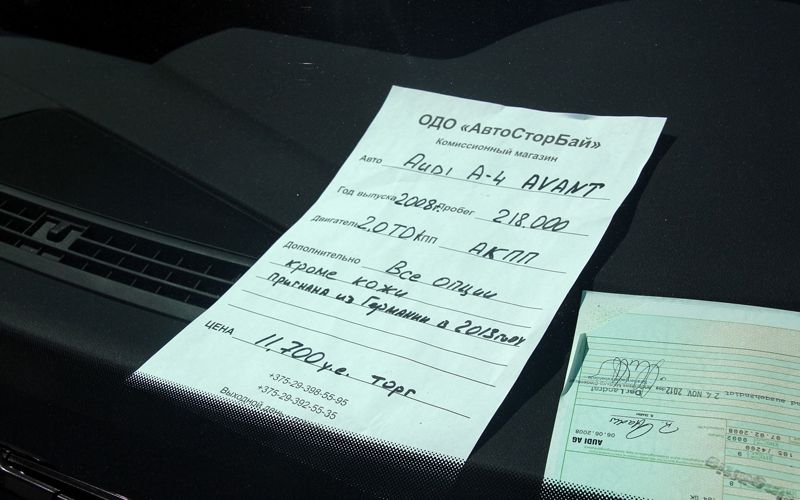 ОДО «АвтоСторБай»
Комиссионный магазин
Авто AUDI A-4 AVANT
Год выпуска 2008г. Пробег 218.000
Двигатель 2,0TD КПП АКПП
Дополнительно Все опции
кроме кожи
пригнана из Германии в 2013 году
ЦЕНА 11,700 у.е. торг
+375-29-398-55-95
+375-29-392-55-35
Выходной день
Der Landrat
24. NOV 2012
AUDI AG
06.06.2008
07.02.2008
0002